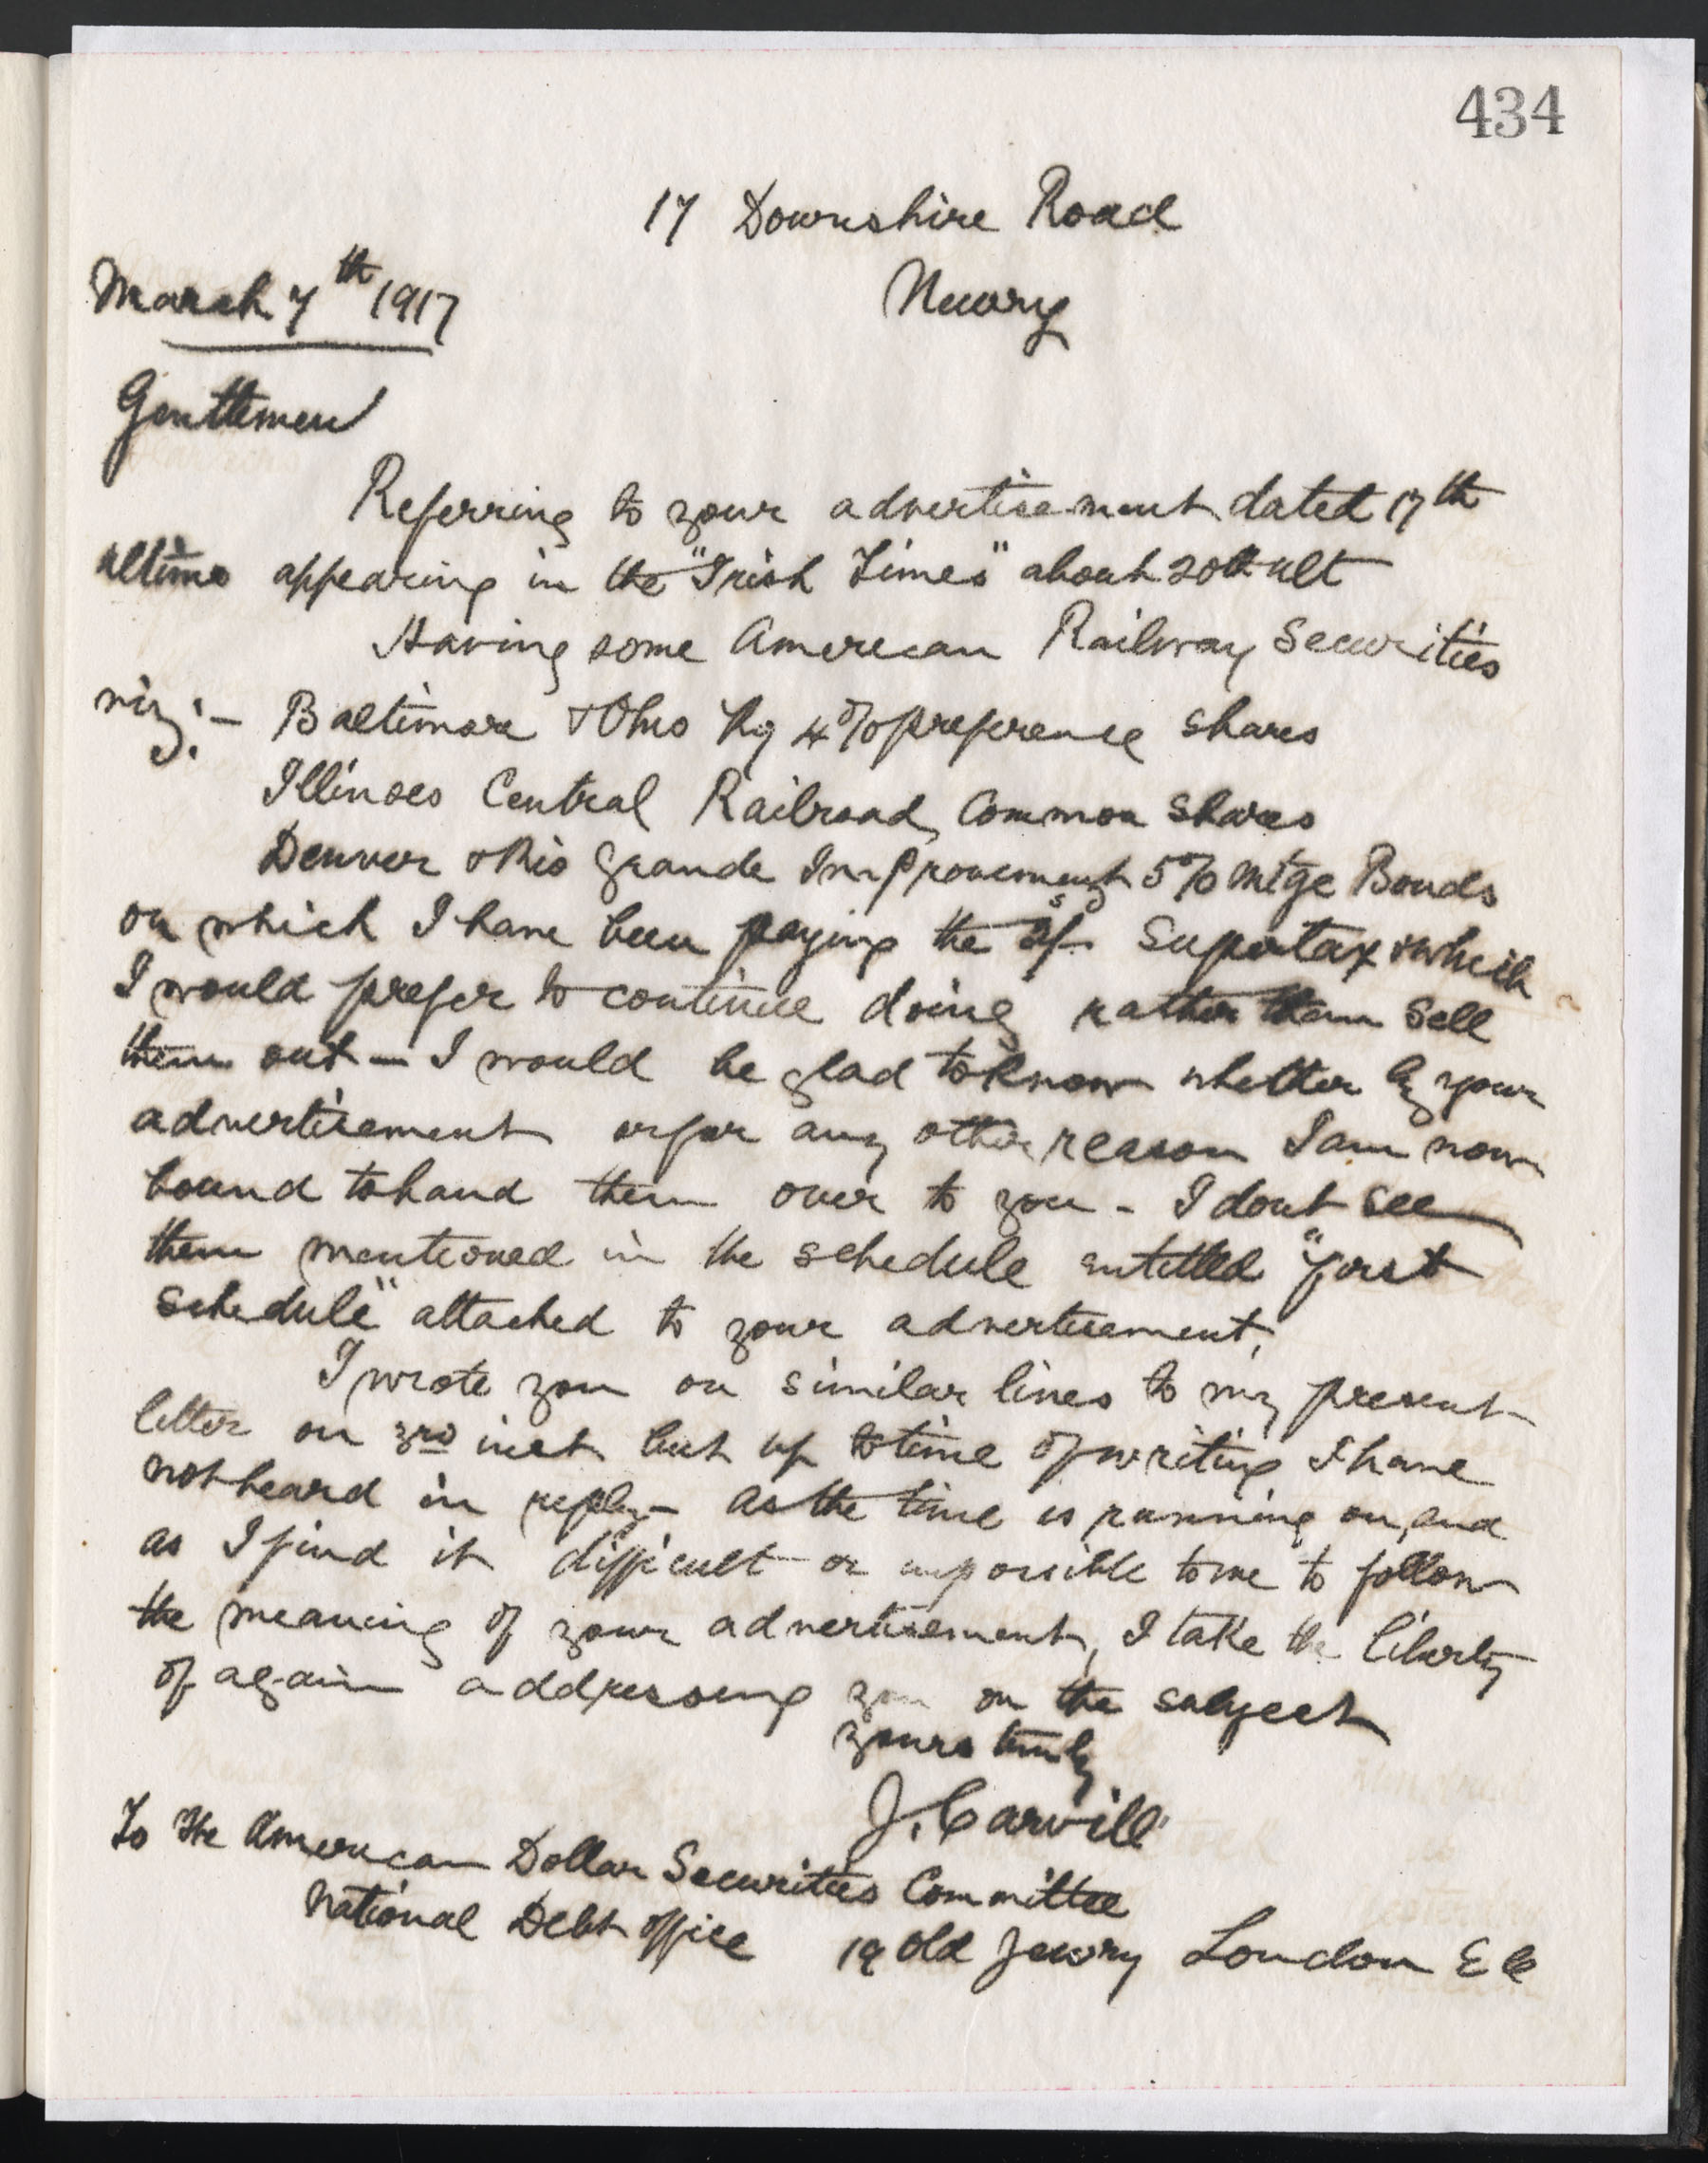 434
17 Downshire Road
Newry
March 7th 1917
Gentlemen
Referring to your advertisement dated 17th
ultimo appearing in the "Irish Times" about 20th ult
Having some American Railway Securities
viz:- Baltimore & Ohio Ry 4% preference shares
Illinois Central Railroad Common Shares
Denver & Rio Grande Improvement 5% Mtge Bonds
on which I have been paying the 2/- Supertax & which
I would prefer to continue doing rather than sell
them out - I would be glad to know whether by your
advertisement or for any other reason I am now
bound to hand them over to you - I dont see
them mentioned in the schedule entitled "first
schedule" attached to your advertisement,
I wrote you on similar lines to my present
letter on 3rd inst but up to time of writing I have
not heard in reply - As the time is running on, and
as I find it difficult or impossible to me to follow
the meaning of your advertisement, I take the liberty
of again addressing you on the subject
yours truly
J. Carvill
To The American Dollar Securities Committee
National Debt office 19 Old Jewry London E C